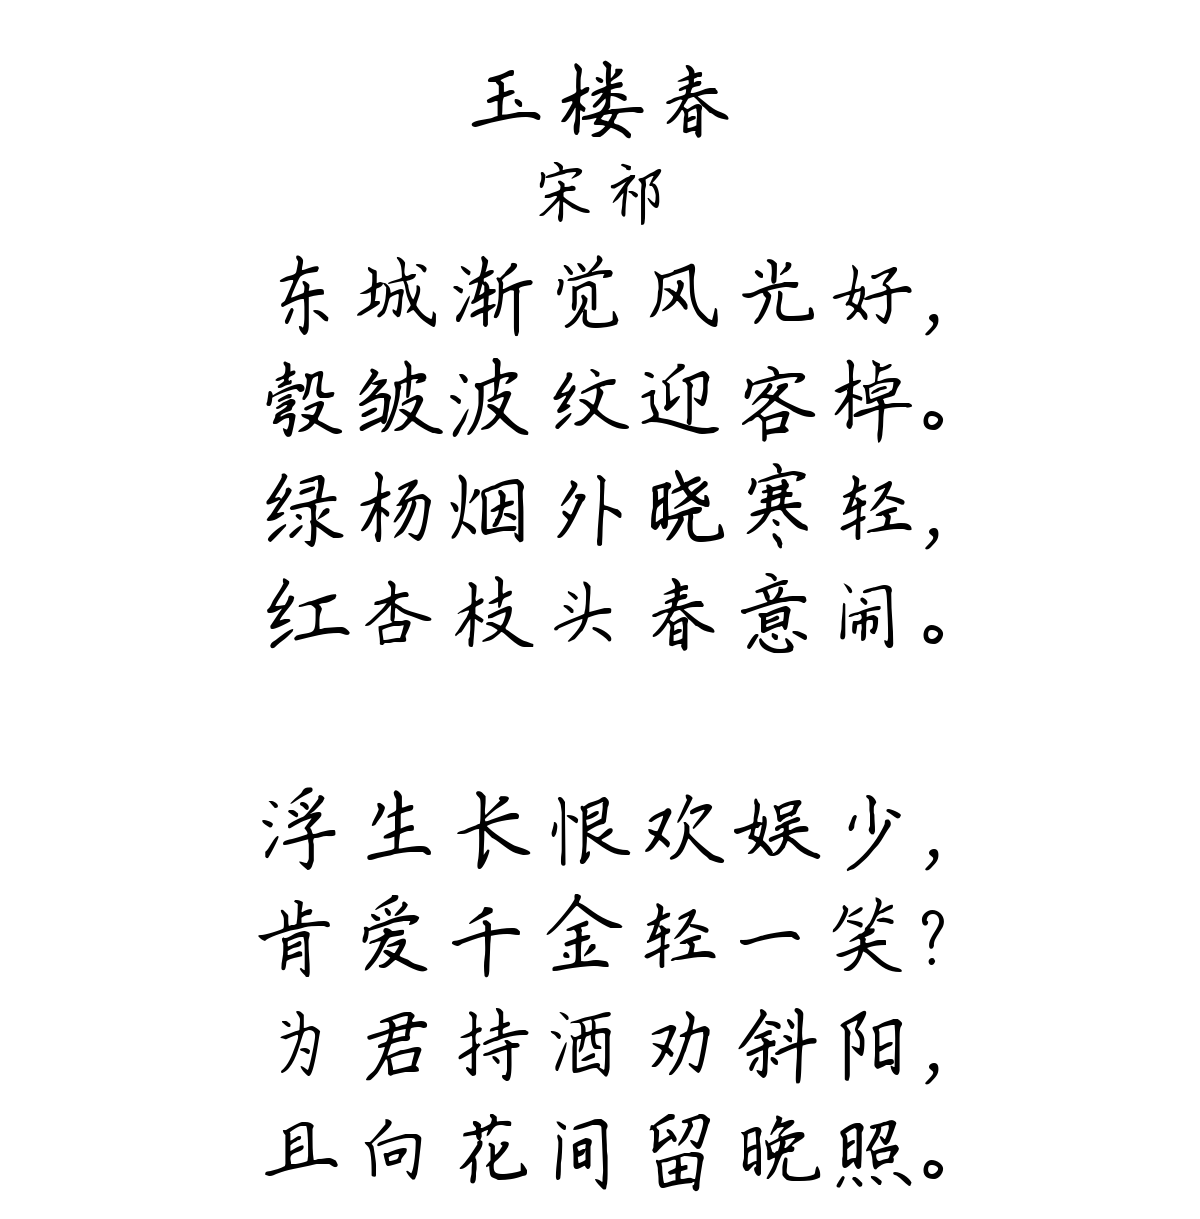 玉楼春
宋祁
东城渐觉风光好,
彀皱波纹迎客棹。
绿杨烟外晓寒轻,
红杏枝头春意闹。
浮生长恨欢娱少,
肯爱千金轻一笑?
为君持酒劝斜阳,
且向花间留晚照。